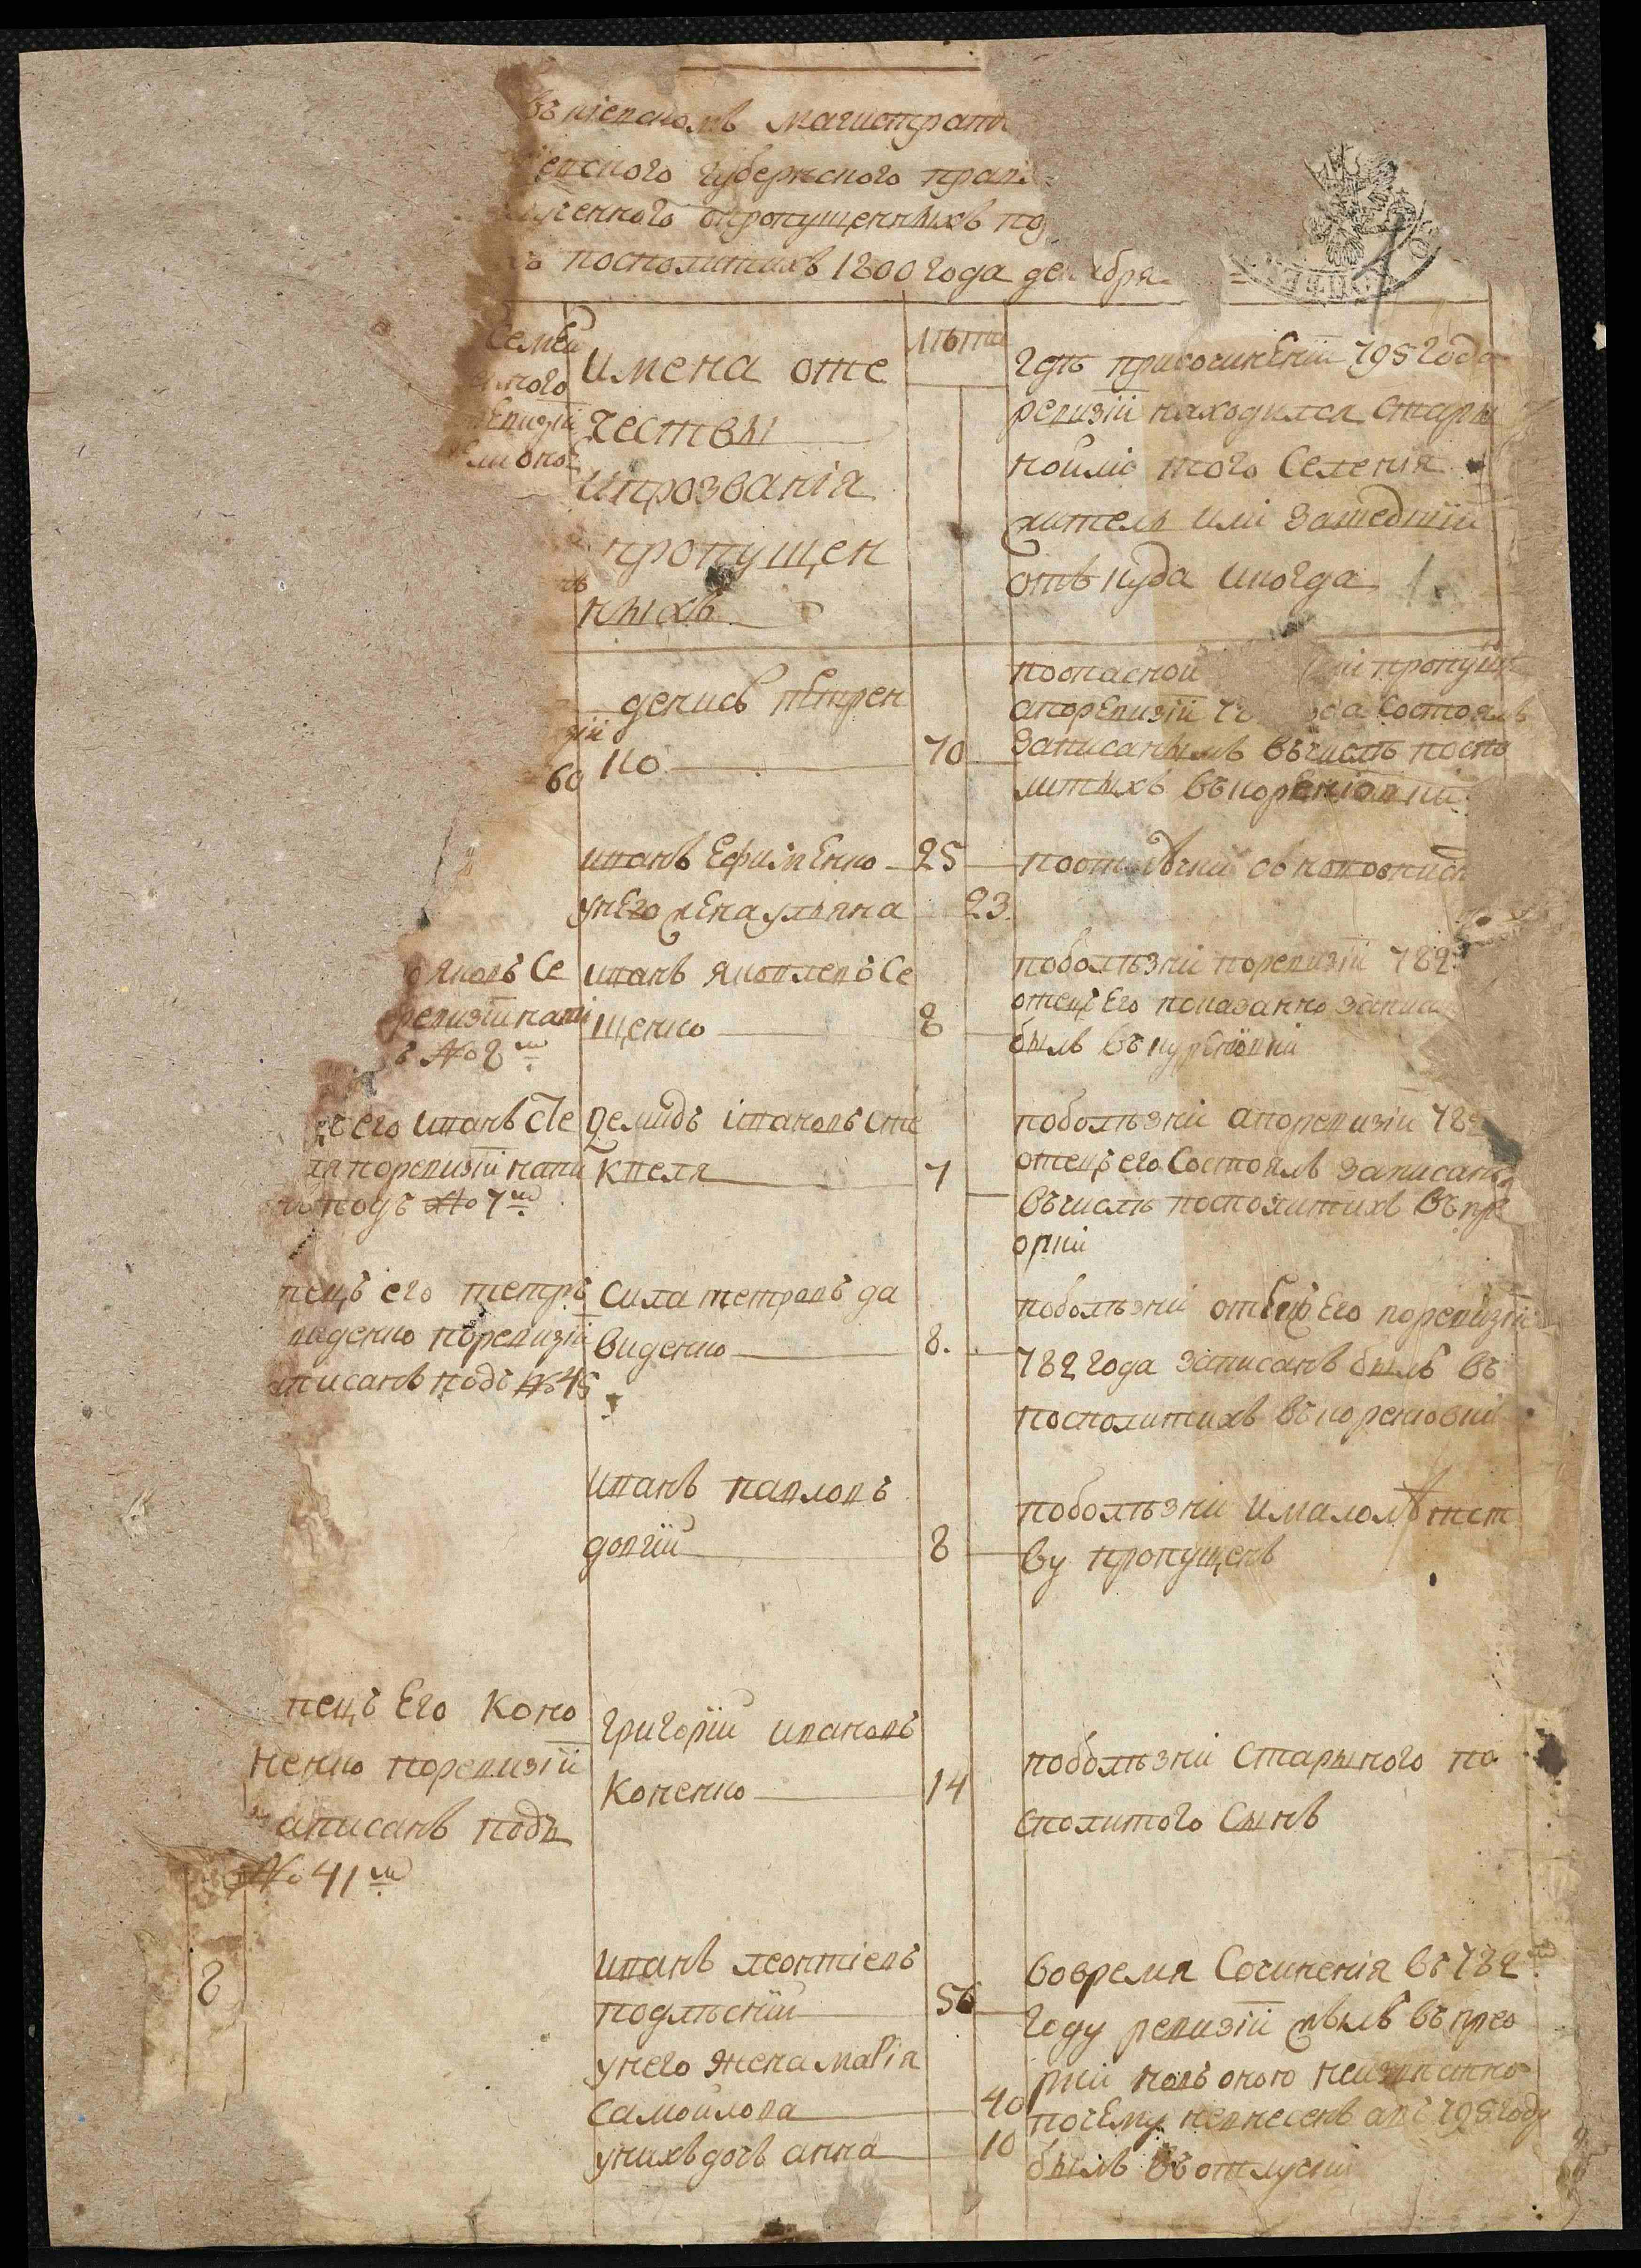 въ киевскомъ магистрати
евского губернского прави
ленного опропущенныхъ по
посполитихъ 1800 года декабря
Семеи
ного
Ревизіи
имена оте
чествы
ипрозванія
пропущен
ныхъ
лѣта
гдѣ присочиненіи 795 года
ревизіи находился стары
ноили того Селенія
житель или Зашедшіи
отъ куда икогда
зіи
60
денисъ петрен
ко
70
поопасной пропущ
апоревизіи года Состоялъ
Записанымъ въчислѣ поспо
литыхъ въкореніовки
иванъ Ефименко 25
унего жена ульяна 23
поотлучки
яковъ Се
ревизіи напи
№ 8м
иванъ яковлевъ Се
щенко 8
поболѣзни поревизіи 782
отецъ Его показанно запис
былъ въкуреніовки
его иванъ Сте
поревизіи напи
подъ № 7м
Демидъ івановъ сте
квеля 7
поболѣзни апоревизіи 782
отецъ его Состоялъ записанъ
въчислѣ посполитихъ въпре
орки
тецъ его петръ
виденко поревизіи
аписанъ подъ № 45
Сила петровъ да
виденко 8
поболѣзни отецъ Его поревизіи
782 года записанъ былъ въ
посполитихъ въкореновки
иванъ павловъ
довгіи 8
поболѣзни ималолѣтст
ву пропущенъ
тецъ Его Коно
ненко поревизіи
аписанъ подъ
№ 41м
григоріи ивановъ
Коненко 14
поболѣзни старыного по
сполитого Сынъ
8
иванъ леонтіевъ
подлѣскіи 56
унего жена марія
Самойлова 40
унихъ дочь анна 10
вовремя Сочиненія въ 782м
году ревизіи жылъ въпрео
рки
почему невнесенъ авъ 795 году
былъ въотлуски